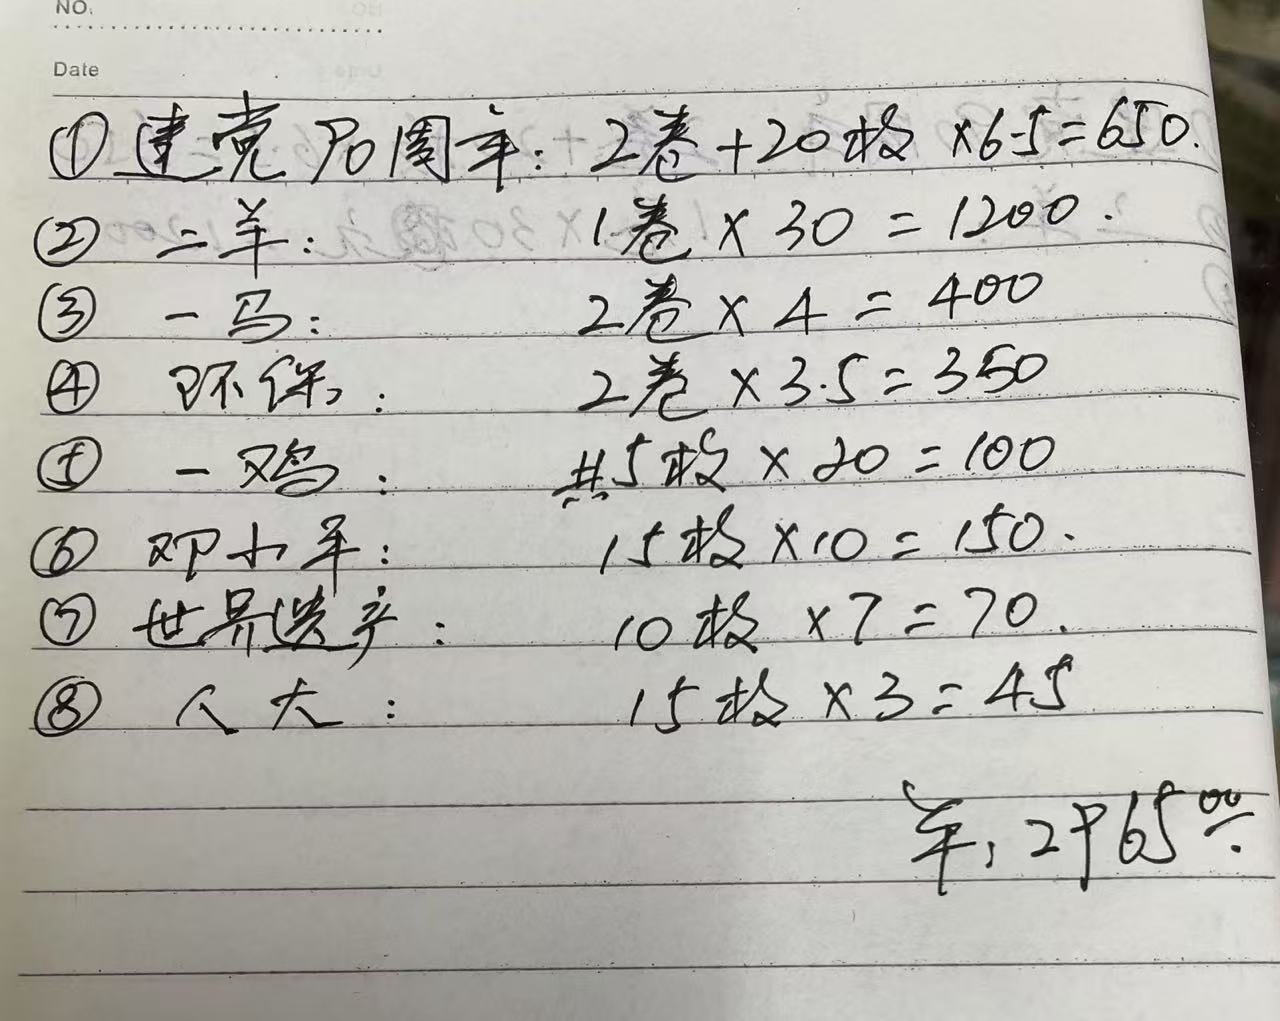 NO.
Date
① 建党70周年: 2卷+20枚 ×6.5=650.
② 二羊: 1卷 × 30 = 1200.
③ 一马: 2卷 × 4 = 400
④ 环保: 2卷 ×3.5=350
⑤ 一鸡: 共5枚 × 20 = 100
⑥ 邓小平: 15枚 ×10 = 150.
⑦ 世界遗产: 10枚 ×7=70.
⑧ 人大: 15枚 ×3=45
2965.00